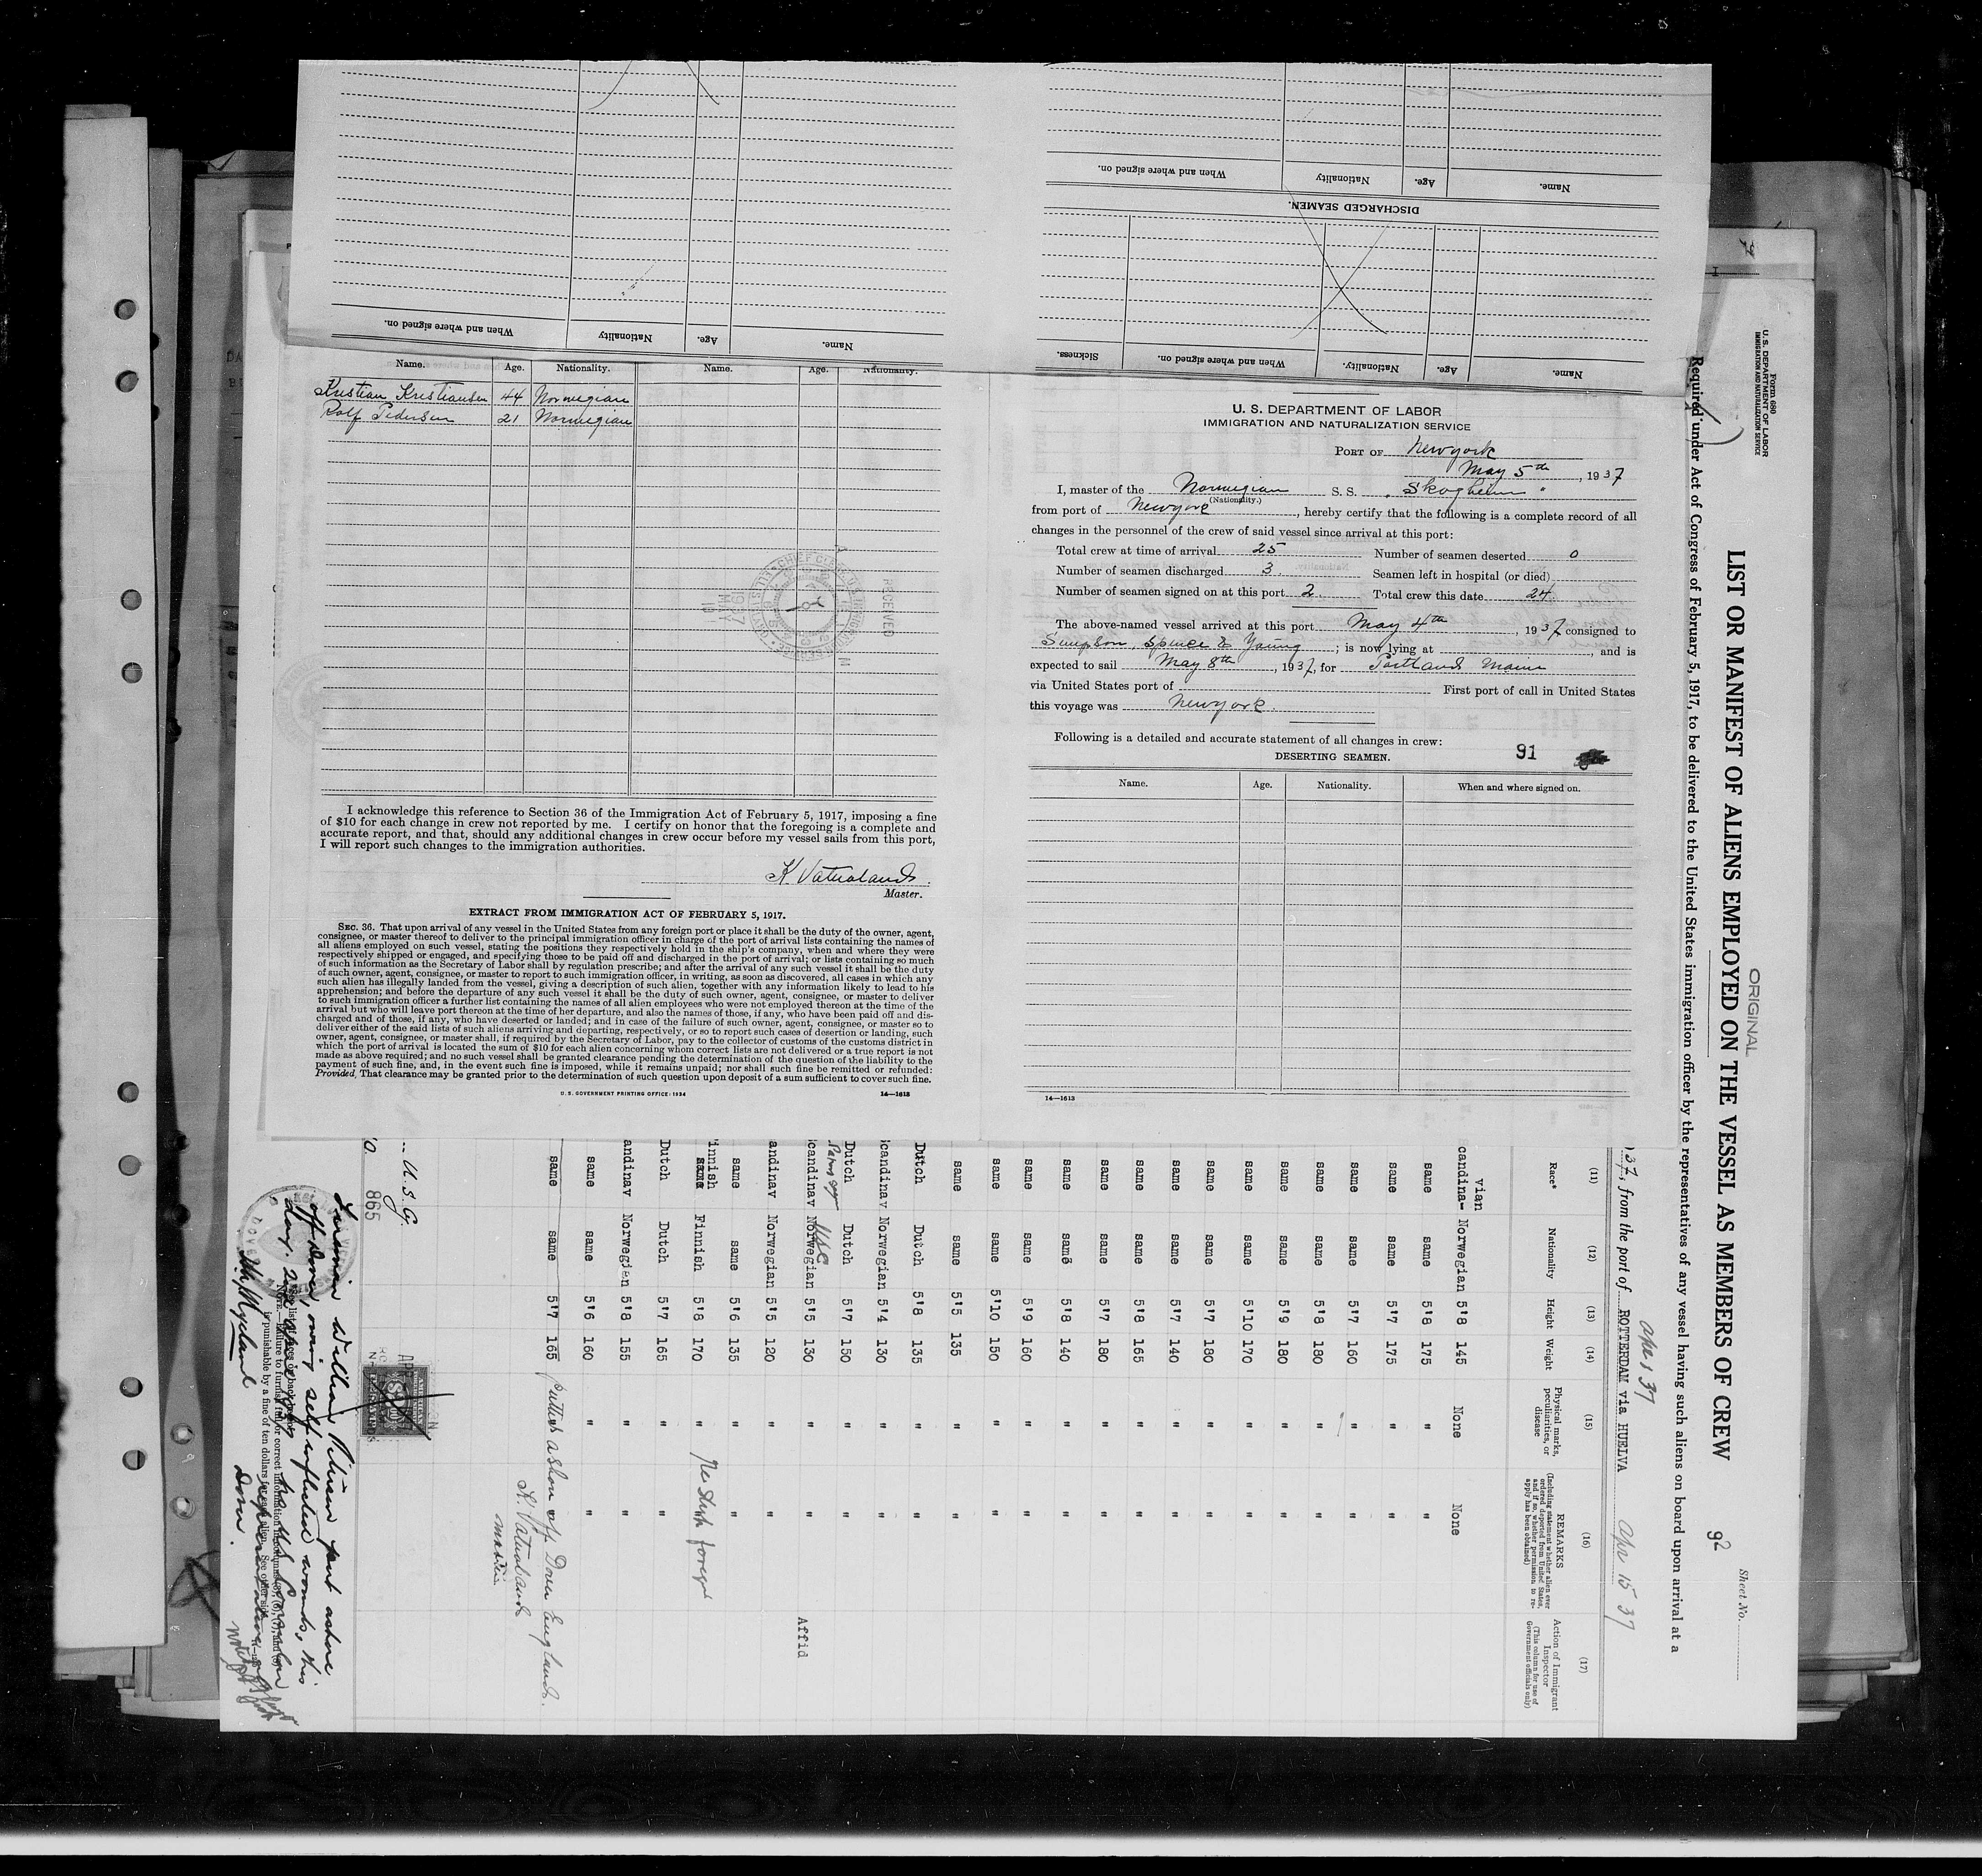 When and where signed on.
Nationality
Age.
Name.
When and where signed on.
Nationality
Age.
Name.
DISCHARGED SEAMEN.
Sickness.
When and where signed on.
Nationality.
Age.
Name.
Name. Age. Nationality. Name. Age. Nationality.
Kristian Kristiansen 44 Norwegian
Rolf Pedersen 21 Norwegian
RECEIVED
I acknowledge this reference to Section 36 of the Immigration Act of February 5, 1917, imposing a fine
of $10 for each change in crew not reported by me. I certify on honor that the foregoing is a complete and
accurate report, and that, should any additional changes in crew occur before my vessel sails from this port,
I will report such changes to the immigration authorities.
Master.
EXTRACT FROM IMMIGRATION ACT OF FEBRUARY 5, 1917.
SEC. 36. That upon arrival of any vessel in the United States from any foreign port or place it shall be the duty of the owner, agent,
consignee, or master thereof to deliver to the principal immigration officer in charge of the port of arrival lists containing the names of
all aliens employed on such vessel, stating the positions they respectively hold in the ship's company, when and where they were
respectively shipped or engaged, and specifying those to be paid off and discharged in the port of arrival; or lists containing so much
of such information as the Secretary of Labor shall by regulation prescribe; and after the arrival of any such vessel it shall be the duty
of such owner, agent, consignee, or master to report to such immigration officer, in writing, as soon as discovered, all cases in which any
such alien has illegally landed from the vessel, giving a description of such alien, together with any information likely to lead to his
apprehension; and before the departure of any such vessel it shall be the duty of such owner, agent, consignee, or master to deliver
to such immigration officer a further list containing the names of all alien employees who were not employed thereon at the time of the
arrival but who will leave port thereon at the time of her departure, and also the names of those, if any, who have been paid off and dis-
charged and of those, if any, who have deserted or landed; and in case of the failure of such owner, agent, consignee, or master so to
deliver either of the said lists of such aliens arriving and departing, respectively, or so to report such cases of desertion or landing, such
owner, agent, consignee, or master shall, if required by the Secretary of Labor, pay to the collector of customs of the customs district in
which the port of arrival is located the sum of $10 for each alien concerning whom correct lists are not delivered or a true report is not
made as above required; and no such vessel shall be granted clearance pending the determination of the question of the liability to the
payment of such fine, and, in the event such fine is imposed, while it remains unpaid; nor shall such fine be remitted or refunded:
Provided, That clearance may be granted prior to the determination of such question upon deposit of a sum sufficient to cover such fine.
U. S. GOVERNMENT PRINTING OFFICE: 1934 14—1613
U. S. DEPARTMENT OF LABOR
IMMIGRATION AND NATURALIZATION SERVICE
PORT OF Newyork
May 5th, 1937
I, master of the Norwegian S. S. "Skogheim"
(Nationality.)
from port of Newyork, hereby certify that the following is a complete record of all
changes in the personnel of the crew of said vessel since arrival at this port:
Total crew at time of arrival 25 Number of seamen deserted 0
Number of seamen discharged 3. Seamen left in hospital (or died)
Number of seamen signed on at this port 2. Total crew this date 24
The above-named vessel arrived at this port May 4th, 1937 consigned to
Simpson, Spence & Young; is now lying at , and is
expected to sail May 8th, 1937, for Portland Maine
via United States port of First port of call in United States
this voyage was Newyork.
Following is a detailed and accurate statement of all changes in crew:
91
DESERTING SEAMEN.
Name. Age. Nationality. When and where signed on.
14—1613
Form 680
U. S. DEPARTMENT OF LABOR
IMMIGRATION AND NATURALIZATION SERVICE
ORIGINAL
Sheet No.
LIST OR MANIFEST OF ALIENS EMPLOYED ON THE VESSEL AS MEMBERS OF CREW
92
Required under Act of Congress of February 5, 1917, to be delivered to the United States immigration officer by the representatives of any vessel having such aliens on board upon arrival at a
37, from the port of ROTTERDAM via HUELVA Apr 15 37
(11) (12) (13) (14) (15) (16) (17)
Race* Nationality Height Weight Physical marks, peculiarities, or disease REMARKS (Including statement whether alien ever ordered deported from United States, and if so, whether permission to reapply has been obtained) Action of Immigrant Inspector (This column for use of Government officials only)
candina-vian Norwegian 5'8 145 None None
same same 5'8 175 " "
same same 5'7 175 " "
same same 5'7 160 " "
same same 5'8 180 " "
same same 5'9 180 " "
same same 5'10 170 " "
same same 5'7 180 " "
same same 5'7 140 " "
same same 5'8 165 " "
same same 5'7 180 " "
same same 5'8 140 " "
same same 5'9 160 " "
same same 5'10 150 " "
same same 5'5 135 " "
Dutch Dutch 5'8 135 " "
candinav Norwegian 5'4 130 " "
Dutch Dutch 5'7 150 " "
candinav Norwegian USC 5'5 130 " " Affid
andinav Norwegian 5'5 120 " "
same same 5'6 135 " "
innish Finnish 5'8 170 " "
Dutch Dutch 5'7 165 " "
andinav Norwegian 5'8 155 " "
same same 5'6 160 " "
same same 5'7 165 putted ashore off Dover England.
K. Vatneland
master.
U.S.G.
865
put ashore
off Dover, owing self inflicted wounds, this
Dover.